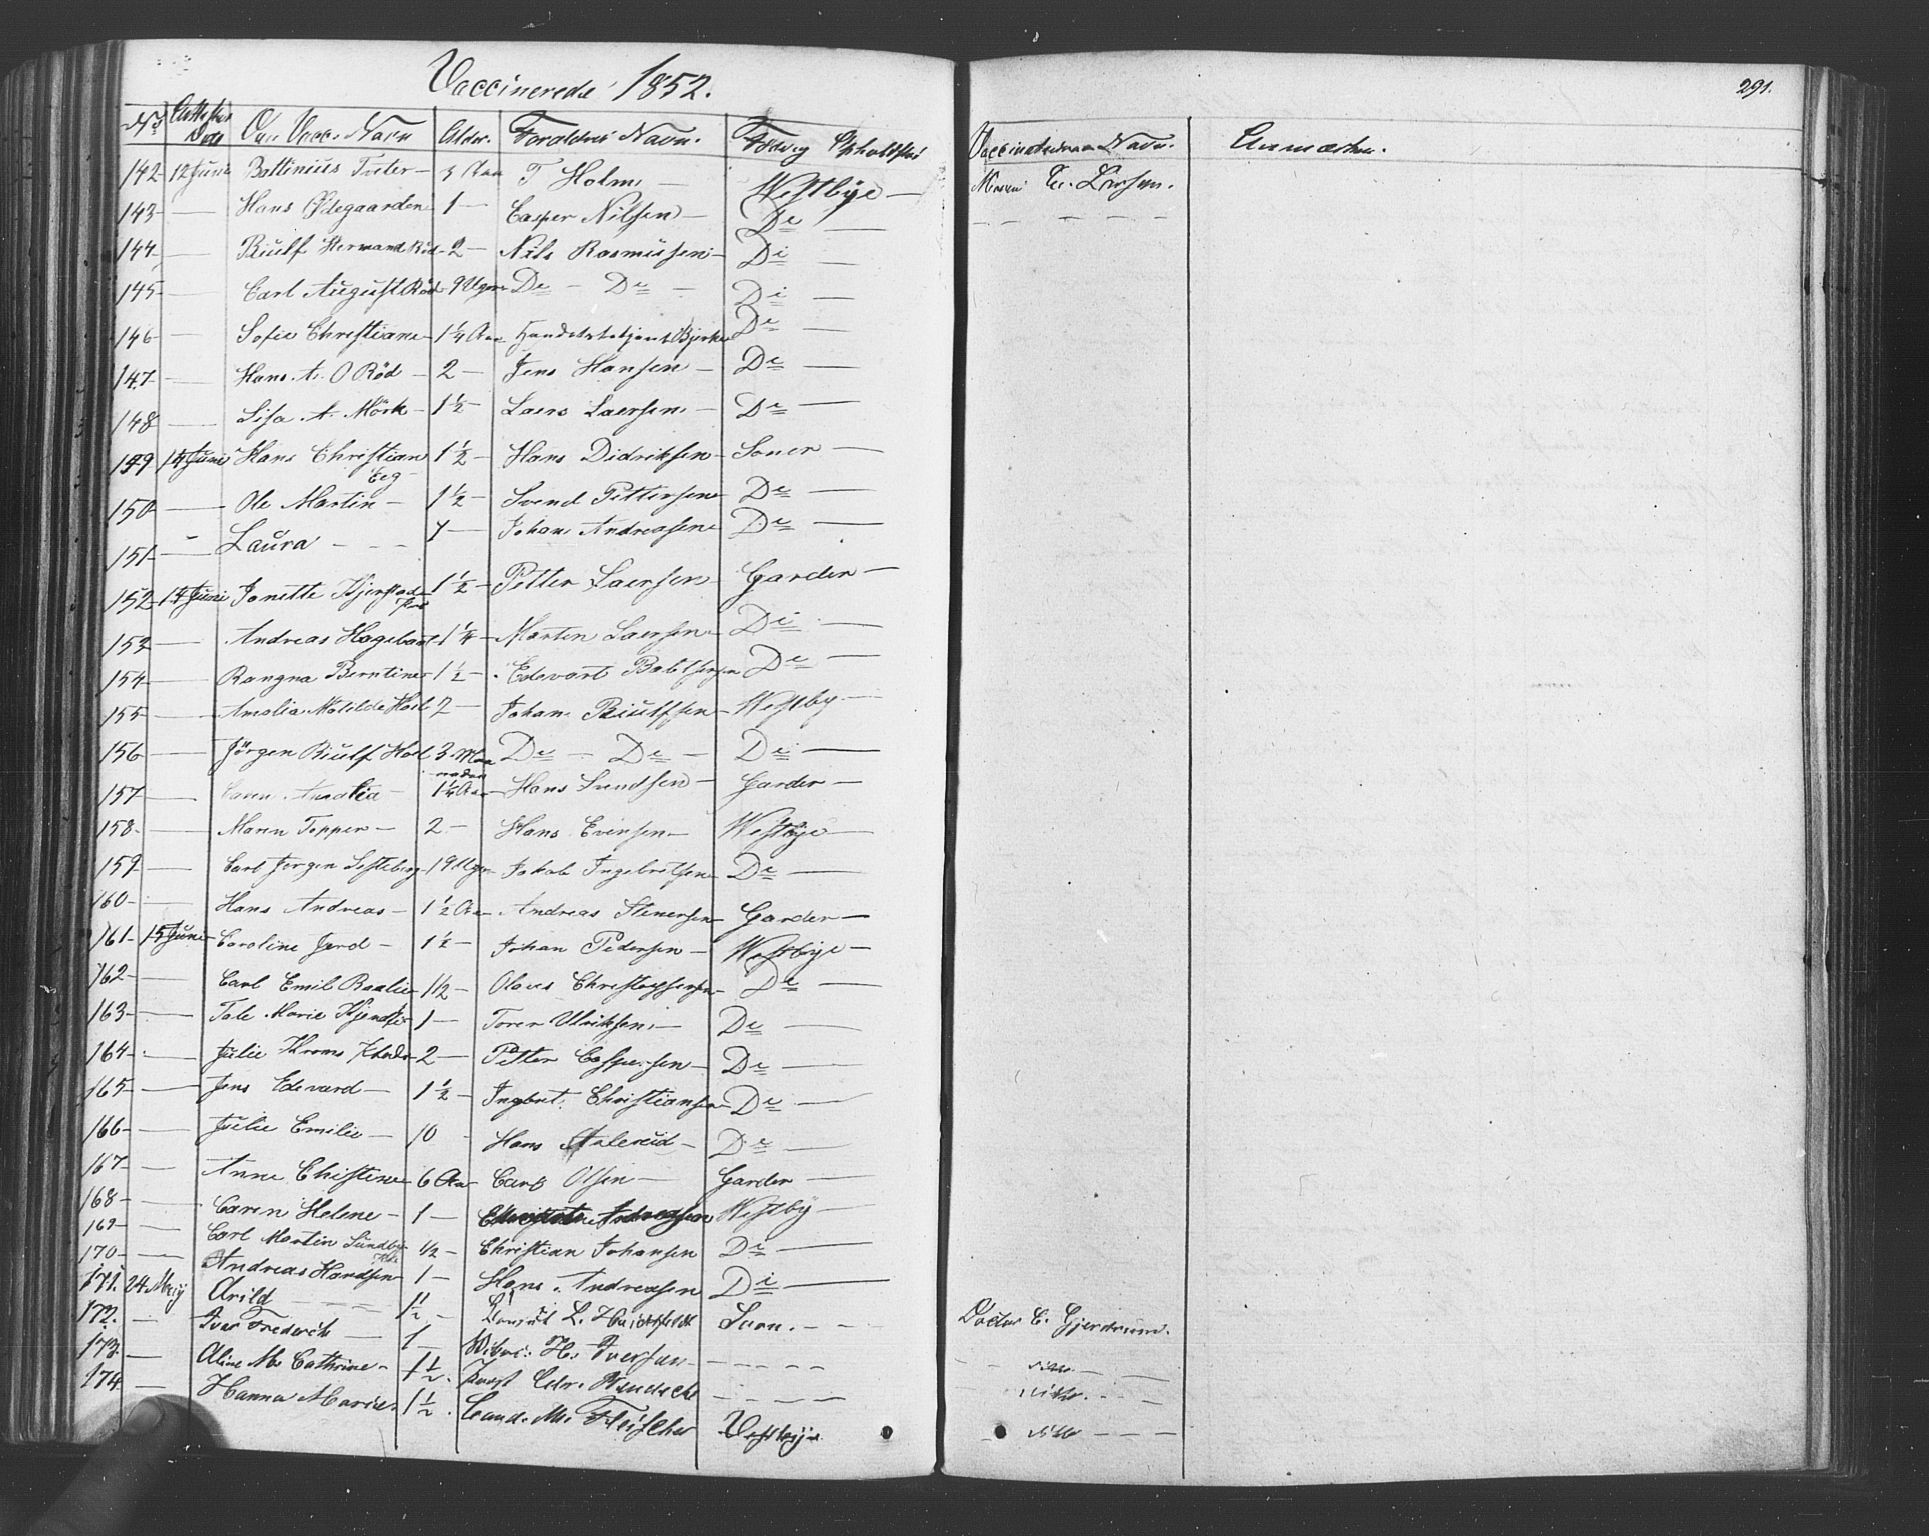 Vaccinerede 1852.
291.
No Attestens Dag Den Vacc. Navn Alder. Forældres Navn. Födested Opholdsted Vaccinateurens Navn. Anmærkn.
142 12 Juni Toeter 3 Aar T Holm Westbye Larsen.
143 Hans Ødegaarden 1 Casper Nilsen De
144 Riulf Herman Röd 2 Nils Rasmussen De
145 Carl August Röd 9 Uger De De De
146 Sofie Christiane 1 1/4 Aar Bjerke De
147 Hans A. O Röd 2 Jens Hansen De
148 Lisa A. Mörk 1 1/2 Laers Laersen De
149 14 Juni Hans Christian Eeg 1 1/2 Hans Didriksen Soner
150 Ole Martin 1 1/2 Svend Pettersen De
151 Laura 7 Johan Andreasen De
152 14 Juni Jonette 1 1/2 Petter Laersen Garder
153 Andreas 1 1/4 Morten Laersen De
154 Rangna Berntine 1 1/2 Edevart De
155 Amalia Matelda Hoel 2 Johan Riulfsen Westby
156 Jörgen Riulf Hoel 3 Maaneder De De De
157 Caren Amalia 1 1/4 Aar Hans Svendsen Garder
158 Maren Topper 2 Hans Evensen Westbye
159 Carl Jörgen 19 Uger Jakob Ingebretsen De
160 Hans Andreas 1 1/2 Aar Andreas Stenersen Garder
161 15 Juni Caroline Jord 1 1/2 Johan Pedersen Westbye
162 Carl Emil 1 1/2 Olaves Christoffersen De
163 Tale Marie 1 Torer Ulriksen De
164 Julie 2 Petter Caspersen De
165 Jens Edevard 1 1/2 Ingbret Christiansen De
166 Julie Emilie 10 Hans De
167 Anne Christine 6 Aar Carl Olsen Garder
168 Caren Helene 1 Andreasen Westby
169 Carl Martin Sundby 1/2 Christian Johansen De
170 Andreas Hansen 1 Hans Andreasen De
171. 24 Maij Arild 1 1/2 Soon. Doctor C. Gjerdrum.
172. Iver Frederik 1 H. Iversen ditto
173 Aline M. Cathrine 1 1/2. ditto.
174 Hanna Marie 1 1/2. Cand. M. Fleischer Vestbye ditto